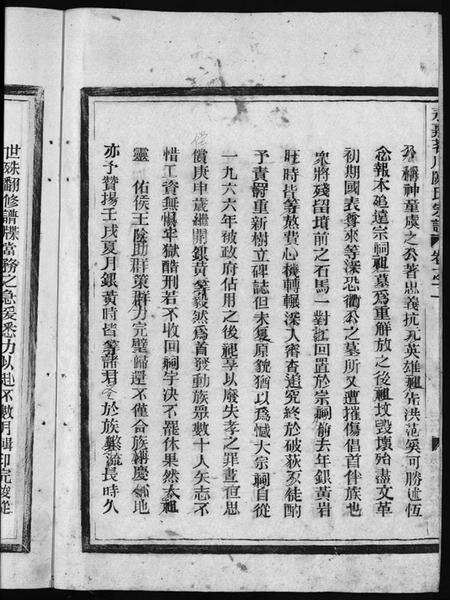 公稱神童虞之公著忠義抗元英雄祖先洪范奚可勝述恆
念報本追遠宗祠祖墓為重解放之後祖坟毀壞殆盡文革
初期國表尊來等深恐衢公之墓所又遭摧傷倡首伴族也
衆將殘留墳前之石馬一對扛回置於宗祠前去年銀黃岩
旺時皆等煞費心機轉輾深入審查追究終於破荻歹徒酌
予責罸重新樹立碑誌但未复原貌猶以爲憾大宗祠自從
一九六六年被政府佔用之後祖享以廢失孝之罪晝亘思
償庚申歲繼開銀黃等毅然爲首發動族眾數十人矢志不
惜工資無惧牢獄酷刑若不收回祠宇决不罷休果然泰祖
靈 佑侯王陰助群策群力完璧歸還不僅合族稱慶鄰地
亦予贊揚壬戌夏月銀黃時皆等諸君念於族繁流長時久
世殊翻修譜牒當務之急爰悉力以赴不數月輯印完竣從